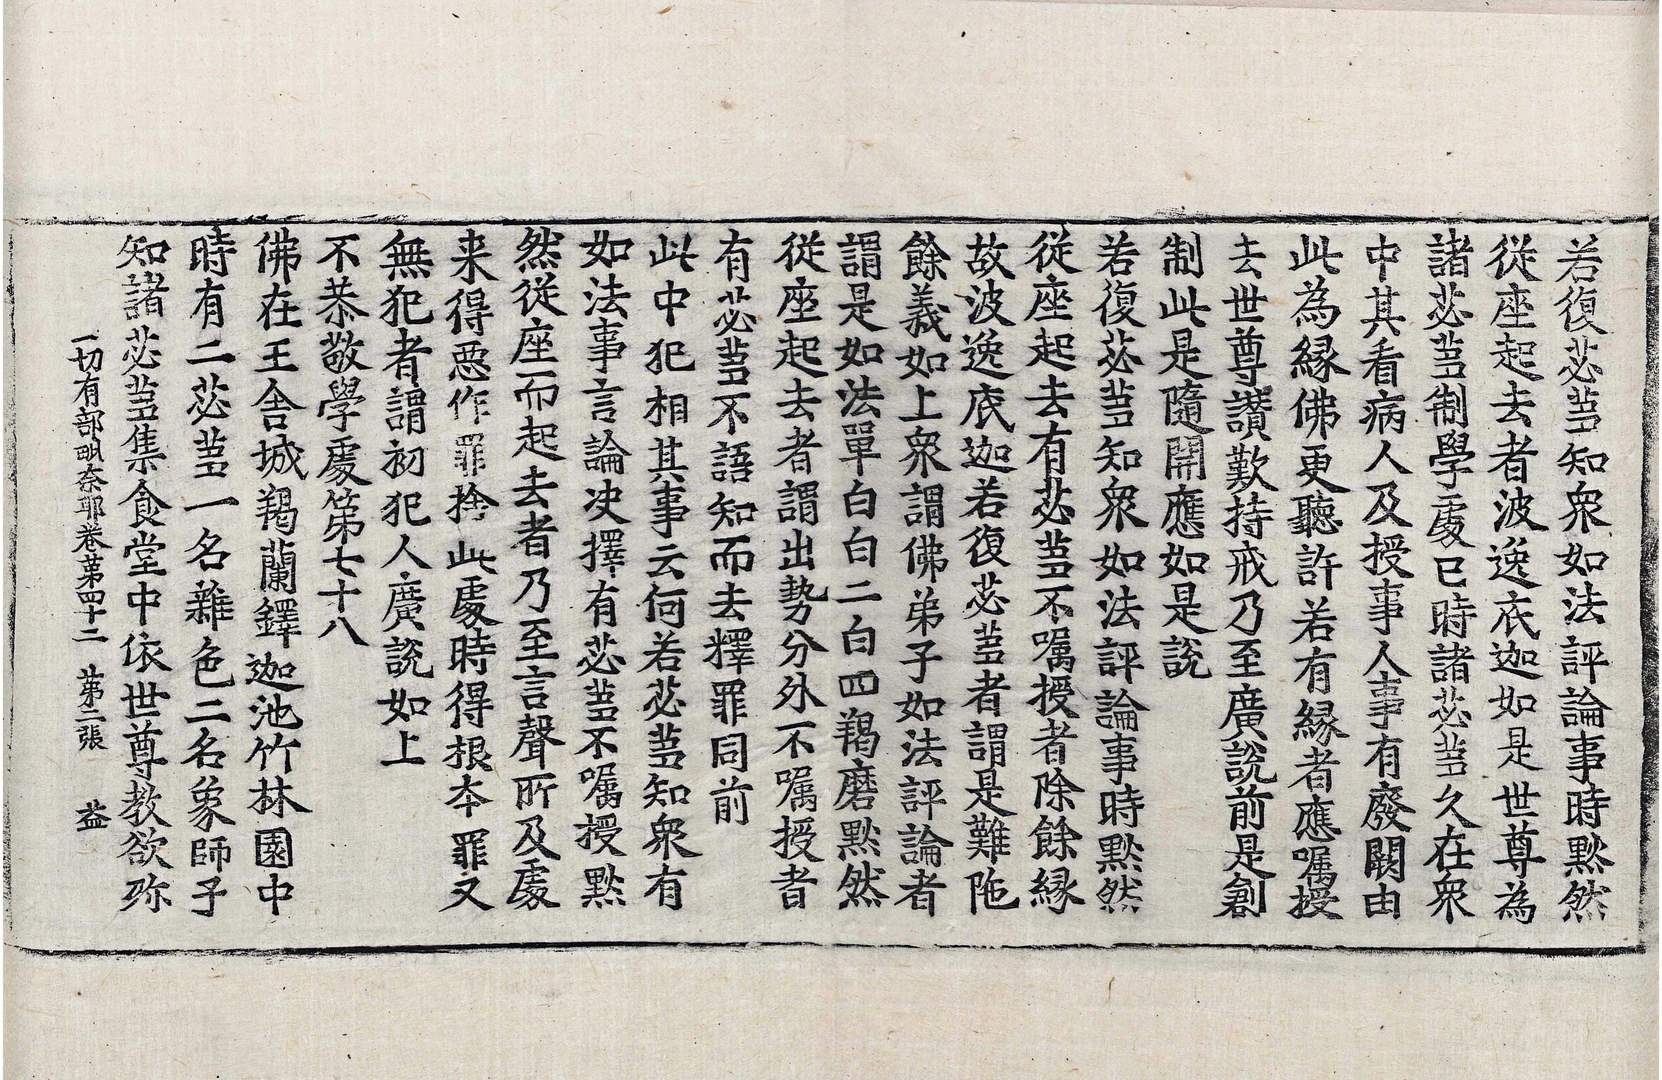 若復苾蒭知衆如法評論事時默然
從座起去者波逸底迦如是世尊為
諸苾蒭制學處已時諸苾蒭久在衆
中其看病人及授事人事有廢闕由
此為縁佛更聽許若有縁者應囑授
去世尊讃歎持戒乃至廣說前是創
制此是隨開應如是說
若復苾蒭知衆如法評論事時默然
從座起去有苾蒭不囑授者除餘縁
故波逸底迦若復苾蒭者謂是難陁
餘義如上衆謂佛弟子如法評論者
謂是如法單白白二白四羯磨默然
從座起去者謂出勢分外不囑授者
有苾蒭不語知而去釋罪同前
此中犯相其事云何若苾蒭知衆有
如法事言論决擇有苾蒭不囑授默
然從座而起去者乃至言聲所及處
来得惡作罪捨此處時得根本罪又
無犯者謂初犯人廣說如上
不恭敬學處第七十八
佛在王舍城羯蘭鐸迦池竹林園中
時有二苾蒭一名雜色二名象師子
知諸苾蒭集食堂中依世尊教欲弥
一切有部毗奈耶卷第四十二　第二張　益